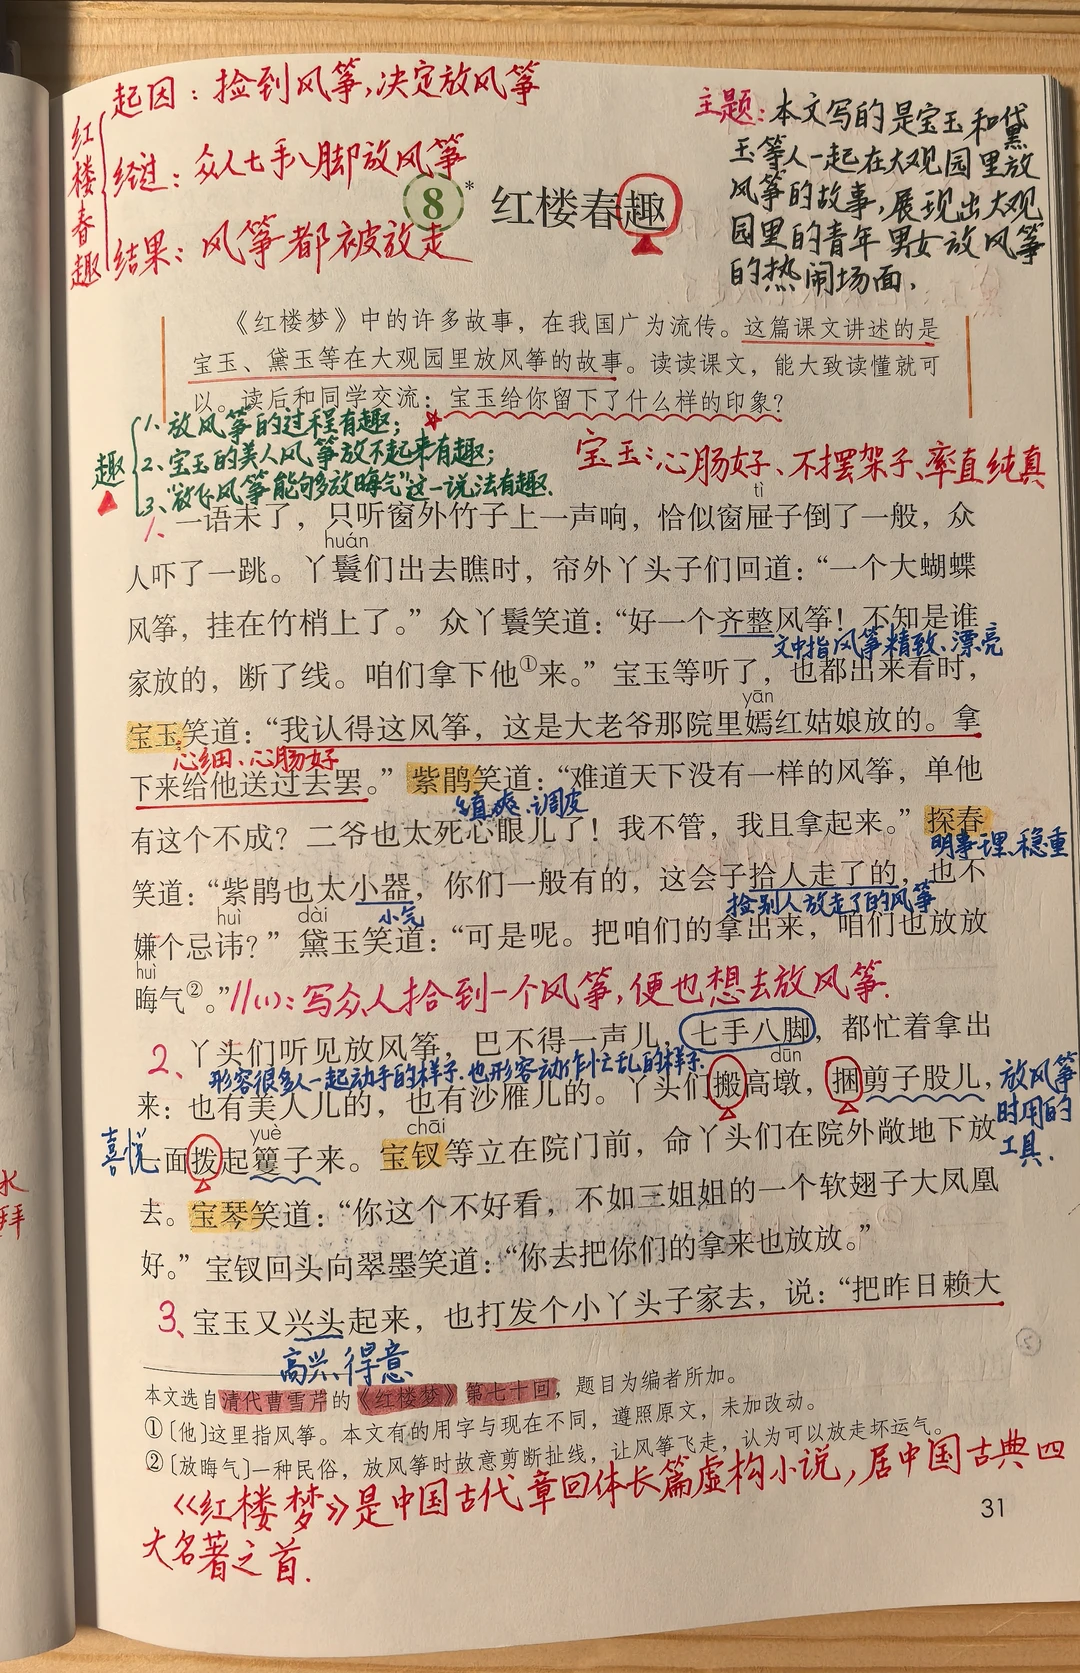 起因：捡到风筝，决定放风筝
红楼春趣
经过：众人七手八脚放风筝
结果：风筝都被放走
主题：本文写的是宝玉和黛
玉等人一起在大观园里放
风筝的故事，展现出大观
园里的青年男女放风筝
的热闹场面。
8* 红楼春趣
《红楼梦》中的许多故事，在我国广为流传。这篇课文讲述的是
宝玉、黛玉等在大观园里放风筝的故事。读读课文，能大致读懂就可
以。读后和同学交流：宝玉给你留下了什么样的印象？
趣
1、放风筝的过程有趣；
2、宝玉的美人风筝放不起来有趣；
3、“放飞风筝能够放晦气”这一说法有趣.
宝玉：心肠好、不摆架子、率直纯真
tì
1. 一语未了，只听窗外竹子上一声响，恰似窗屉子倒了一般，众
huán
人吓了一跳。丫鬟们出去瞧时，帘外丫头子们回道：“一个大蝴蝶
风筝，挂在竹梢上了。”众丫鬟笑道：“好一个齐整风筝！不知是谁
文中指风筝精致、漂亮
家放的，断了线。咱们拿下他①来。”宝玉等听了，也都出来看时，
yān
宝玉笑道：“我认得这风筝，这是大老爷那院里嫣红姑娘放的。拿
心细、心肠好
下来给他送过去罢。”紫鹃笑道：“难道天下没有一样的风筝，单他
直爽、调皮
有这个不成？二爷也太死心眼儿了！我不管，我且拿起来。”探春
明事理、稳重
笑道：“紫鹃也太小器，你们一般有的，这会子拾人走了的，也不
小气
捡别人放走了的风筝
huì dài
嫌个忌讳？”黛玉笑道：“可是呢。把咱们的拿出来，咱们也放放
huì
晦气②。”
//(1)：写众人拾到一个风筝，便也想去放风筝.
2、丫头们听见放风筝，巴不得一声儿，七手八脚，都忙着拿出
形容很多人一起动手的样子.也形容动作忙乱的样子.
dūn
来：也有美人儿的，也有沙雁儿的。丫头们搬高墩，捆剪子股儿，
放风筝
时用的
工具.
喜悦
yuè chāi
一面拨起籰子来。宝钗等立在院门前，命丫头们在院外敞地下放
去。宝琴笑道：“你这个不好看，不如三姐姐的一个软翅子大凤凰
好。”宝钗回头向翠墨笑道：“你去把你们的拿来也放放。”
3、宝玉又兴头起来，也打发个小丫头子家去，说：“把昨日赖大
高兴、得意
本文选自清代曹雪芹的《红楼梦》第七十回，题目为编者所加。
①〔他〕这里指风筝。本文有的用字与现在不同，遵照原文，未加改动。
②〔放晦气〕一种民俗，放风筝时故意剪断扯线，让风筝飞走，认为可以放走坏运气。
《红楼梦》是中国古代章回体长篇虚构小说，居中国古典四
大名著之首.
31